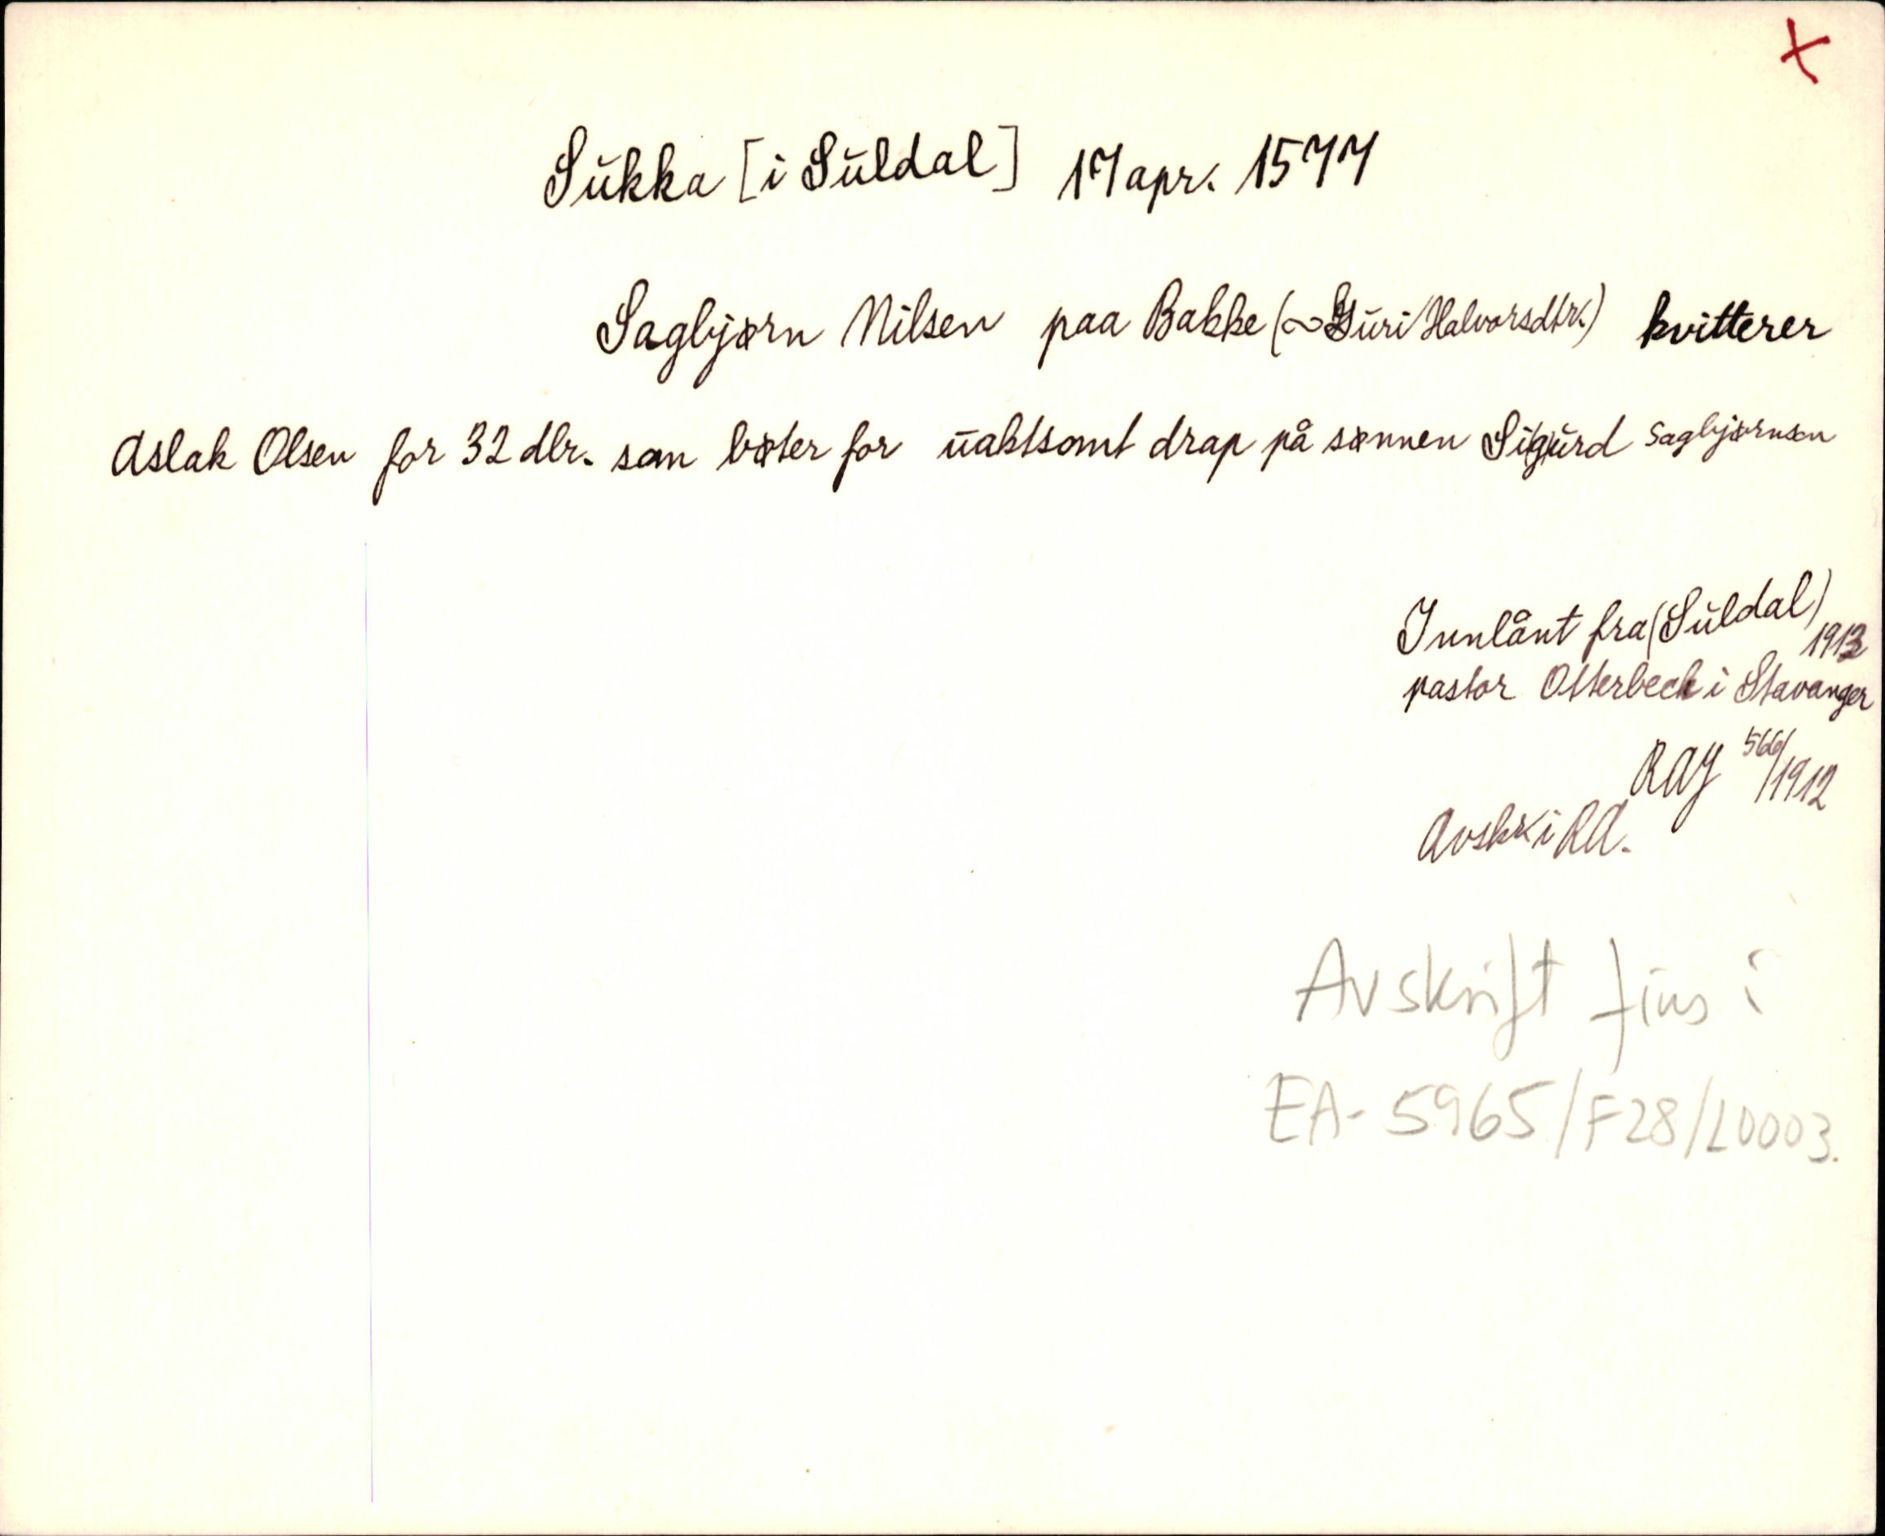 x
Sukka [i Suldal] 17 apr. 1577
Sagbjørn Nilsen paa Bakke (~ Guri Halvorsdtr.) kvitterer
Aslak Olsen for 32 dlr. som bøter for uaktsomt drap på sønnen Sigurd Sagbjørnsen
Innlånt fra (Suldal)
1913
pastor Otterbech i Stavanger
RAJ 566/1912
Avskr. i RA.
Avskrift fins i
EA-5965/F28/L0003.